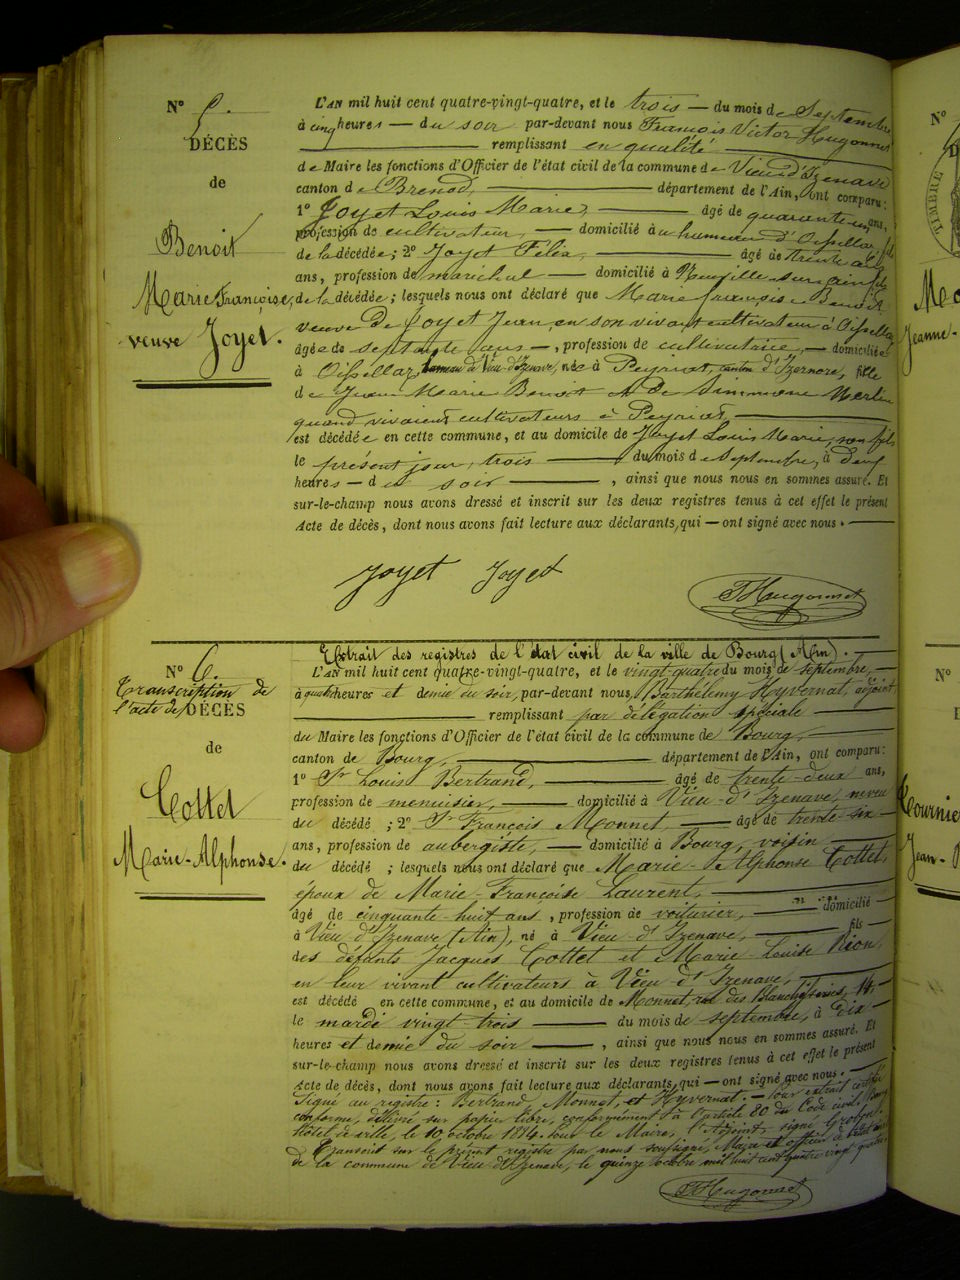 N° 5.
DÉCÈS
de
Benoit
Marie Françoise,
veuve Joyet.
L'AN mil huit cent quatre-vingt-quatre, et le trois — du mois de Septembre
à cinq heures — du soir par-devant nous François Victor Hugonnet
remplissant en qualité
de Maire les fonctions d'Officier de l'état civil de la commune de Vieu d'Izenave
canton de Brenod, département de l'Ain, ont comparu:
1° Joyet Louis Marie, âgé de quarante un ans,
profession de cultivateur, — domicilié au hameau d'Oisellaz, fils
de la décédée; 2° Joyet Félix, âgé de trente
ans, profession de maréchal — domicilié à Neuville sur ain, fils
de la décédée; lesquels nous ont déclaré que Marie françoise Benoit
veuve de Joyet Jean, en son vivant cultivateur à Oisellaz
âgée de septante ans —, profession de cultivatrice, — domiciliée
à Oisellaz, hameau de Vieu-d'Izenave, née à Peyriat, canton d'Izernore, fille
de Jean Marie Benoit et de Simmone Merlin
quand vivaient cultivateurs à Peyriat,
est décédée en cette commune, et au domicile de Joyet Louis Marie, son fils
le présent jour, trois — du mois de septembre, à deux
heures — du soir —, ainsi que nous nous en sommes assuré. Et
sur-le-champ nous avons dressé et inscrit sur les deux registres tenus à cet effet le présent
Acte de décès, dont nous avons fait lecture aux déclarants, qui — ont signé avec nous. —
Joyet Joyet
F Hugonnet
N° 6.
Transcription de
l'acte de DÉCÈS
de
Cottet
Marie-Alphonse.
Extrait des registres de l'état civil de la ville de Bourg (Ain).
L'AN mil huit cent quatre-vingt-quatre, et le vingt-quatre du mois de septembre,
à quatre heures et demie du soir, par-devant nous, Barthélemy Hyvernat, adjoint
remplissant par délégation spéciale
du Maire les fonctions d'Officier de l'état civil de la commune de Bourg,
canton de Bourg, département de l'Ain, ont comparu:
1° Sr Louis Bertrand, âgé de trente-deux ans,
profession de menuisier, — domicilié à Vieu-d'Izenave, neveu
du décédé; 2° Sr François Monnet, — âgé de trente-six
ans, profession de aubergiste, — domicilié à Bourg, voisin
du décédé; lesquels nous ont déclaré que Marie-Alphonse Cottet,
époux de Marie-Françoise Laurent,
âgé de cinquante-huit ans, profession de voiturier, — domicilié
à Vieu d'Izenave (Ain), né à Vieu d'Izenave, — fils
des défunts Jacques Cottet et Marie-Louise
en leur vivant cultivateurs à Vieu d'Izenave,
est décédé en cette commune, et au domicile de Monnet, rue des Blanchisseries, 14,
le mardi vingt-trois — du mois de septembre, à dix
heures et demie du soir —, ainsi que nous nous en sommes assuré. Et
sur-le-champ nous avons dressé et inscrit sur les deux registres tenus à cet effet le présent
Acte de décès, dont nous avons fait lecture aux déclarants, qui — ont signé avec nous. —
Signé au registre: Bertrand, Monnet, et Hyvernat. — Pour extrait certifié
conforme, délivré sur papier libre, conformément à l'article 80 du Code civil. Bourg
hôtel de ville, le 10 octobre 1884. Pour le Maire, l'Adjoint, signé
Transcrit sur le présent registre par nous soussigné, Maire et officier de l'état civil
de la commune de Vieu d'Izenave, le quinze octobre mil huit cent quatre vingt quatre
F Hugonnet
N°
TIMBRE
Jeanne-
N°
Tournier
Jean-